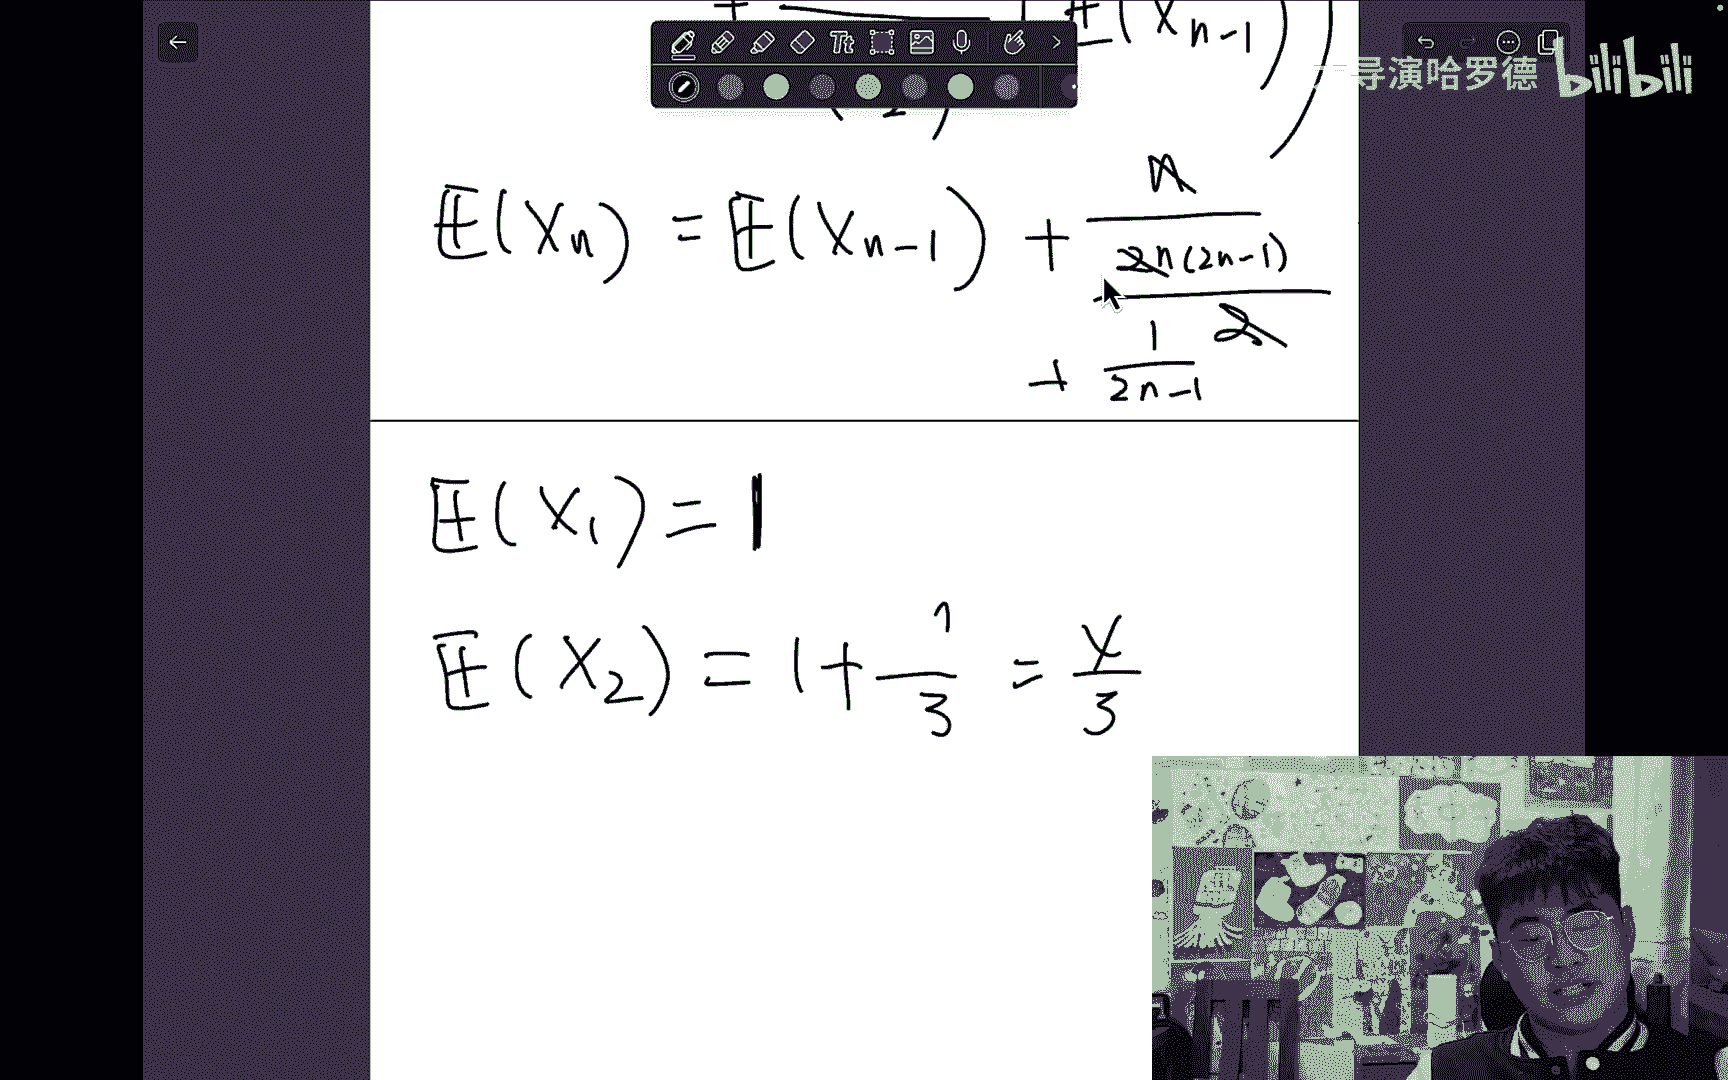 E(X_{n-1})
Tt
导演哈罗德 bilibili
2
E(X_n) = E(X_{n-1}) + n
2n(2n-1)
2
+ 1
2n-1
E(X_1) = 1
E(X_2) = 1 + 1/3 = 4/3